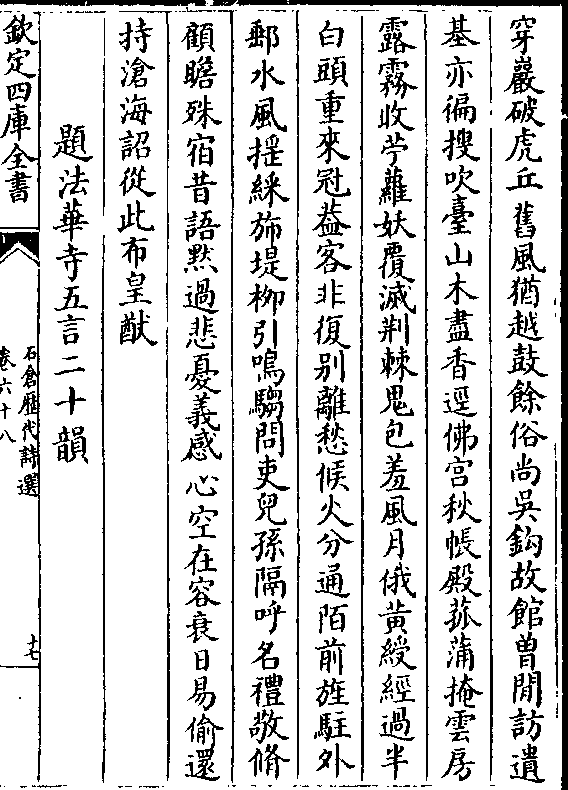 穿巖破虎丘舊風猶越鼓餘俗尚吳鈎故館曾閒訪遺
基亦徧搜吹臺山木盡香逕佛宫秋帳殿菰蒲掩雲房
露霧收苧蘿妖覆滅荆棘鬼包羞風月俄黄綬經過半
白頭重來冠葢客非復别離愁候火分通陌前旌駐外
郵水風揺綵斾堤栁引鳴騶問吏兒孫隔呼名禮敬脩
顧瞻殊宿昔語黙過悲憂義感心空在容衰日易偷還
持滄海詔從此布皇猷
題法華寺五言二十韻
欽定四庫全書
石倉歴代詩選
卷六十八
十七